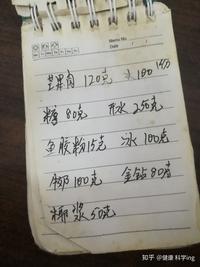 Memo No.
Date / /
芒果肉 120克 水 100
糖 80克 水 250克
鱼胶粉15克 冰 100克
牛奶 100克 金钻 80克
椰浆 50克
知乎 @健康 科学ing